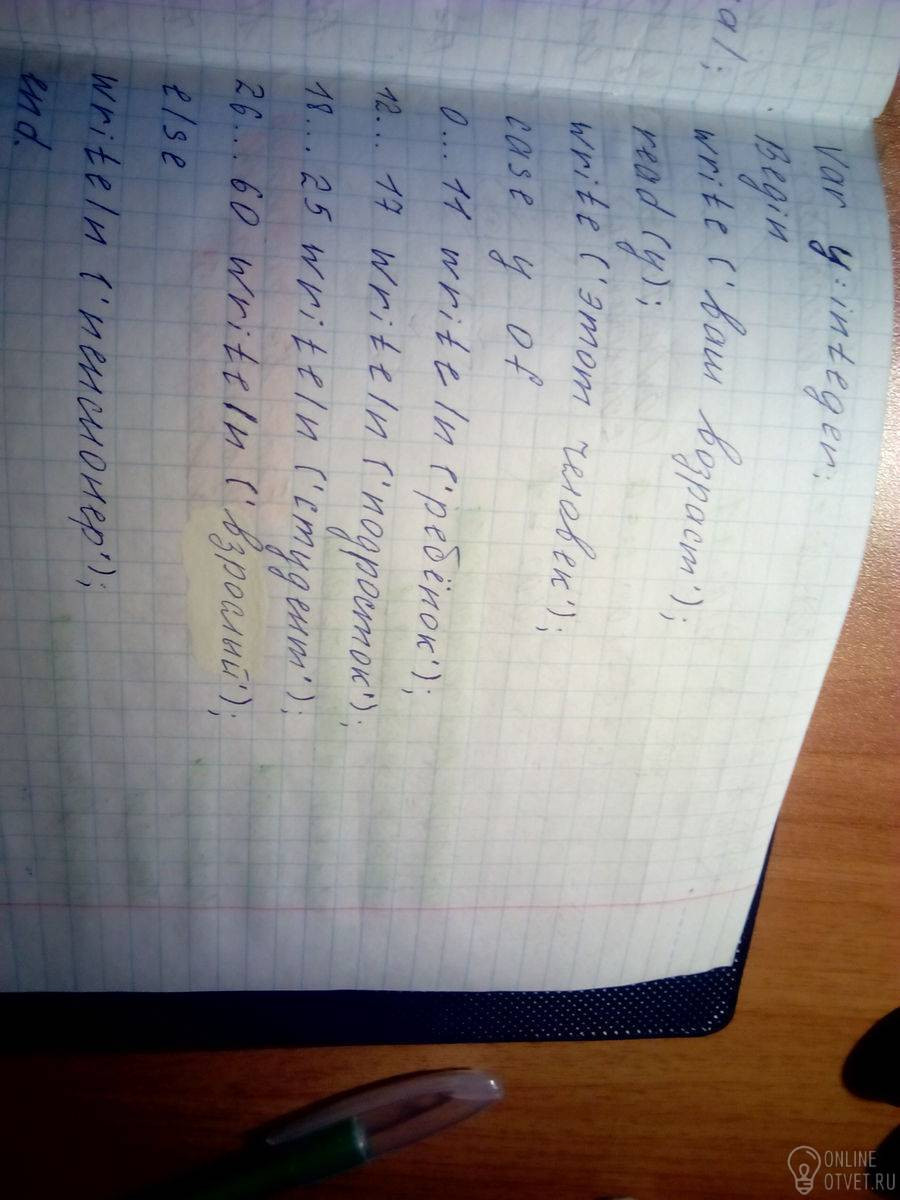 al;
Var y:integer;
Begin
write ('ваш возраст');
read (y);
write ('этот человек');
case y of
0... 11 writeln ('ребёнок');
12... 17 writeln ('подросток');
18... 25 writeln ('студент');
26... 60 writeln ('взрослый');
else
writeln ('пенсионер');
end.
ONLINE
OTVET.RU